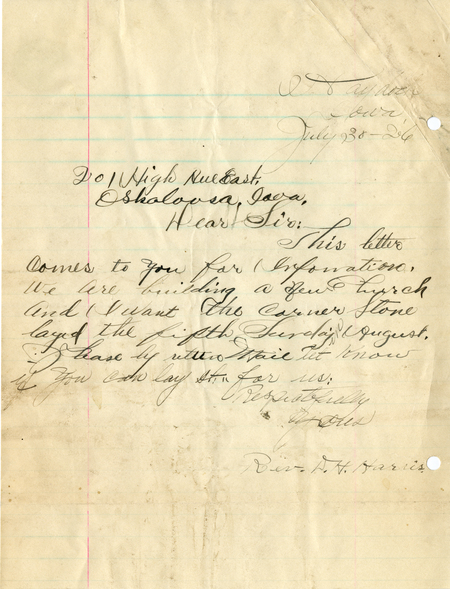 Iowa,
July 30-26
201 High Ave East.
Oskaloosa, Iowa.
Dear Sir:
This letter
comes to you for Infomation.
We are building a New Church
and I want the corner stone
layed the fifth Sunday August.
Please by return Mail let know
if you can lay it for us:
Respectfully
Yours
Rev. D. H. Harris.